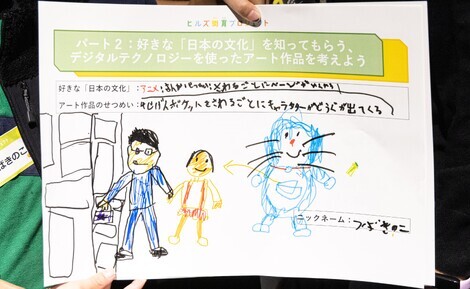 ヒルズ街育プロジェクト
パート2：好きな「日本の文化」を知ってもらう、
デジタルテクノロジーを使ったアート作品を考えよう
好きな「日本の文化」：アニメ
アート作品のせつめい：せいげんポケットをさわるごとにキャラクターがどうがが出てくる
ニックネーム：つばきのこ
ばきのこ